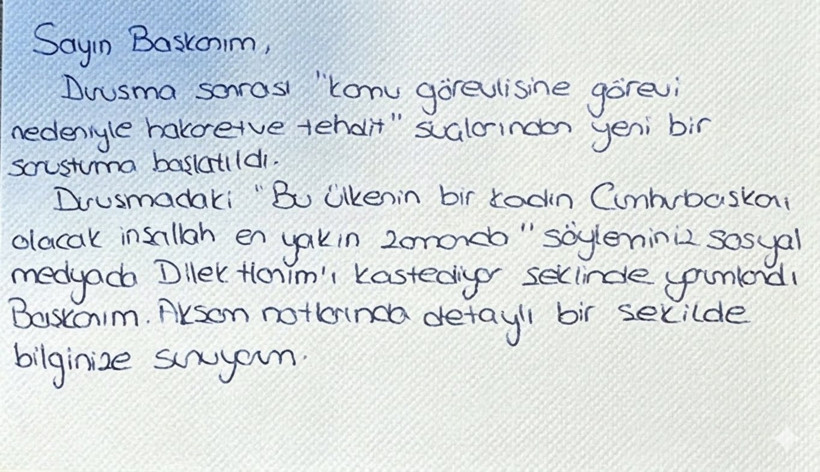 Sayın Başkanım,
Duruşma sonrası "kamu görevlisine görevi
nedeniyle hakaret ve tehdit" suçlarından yeni bir
soruşturma başlatıldı.
Duruşmadaki "Bu ülkenin bir kadın Cumhurbaşkanı
olacak inşallah en yakın zamanda" söyleminiz sosyal
medyada Dilek Hanım'ı kastediyor şeklinde yorumlandı
Başkanım. Akşam notlarında detaylı bir şekilde
bilginize sunuyorum.